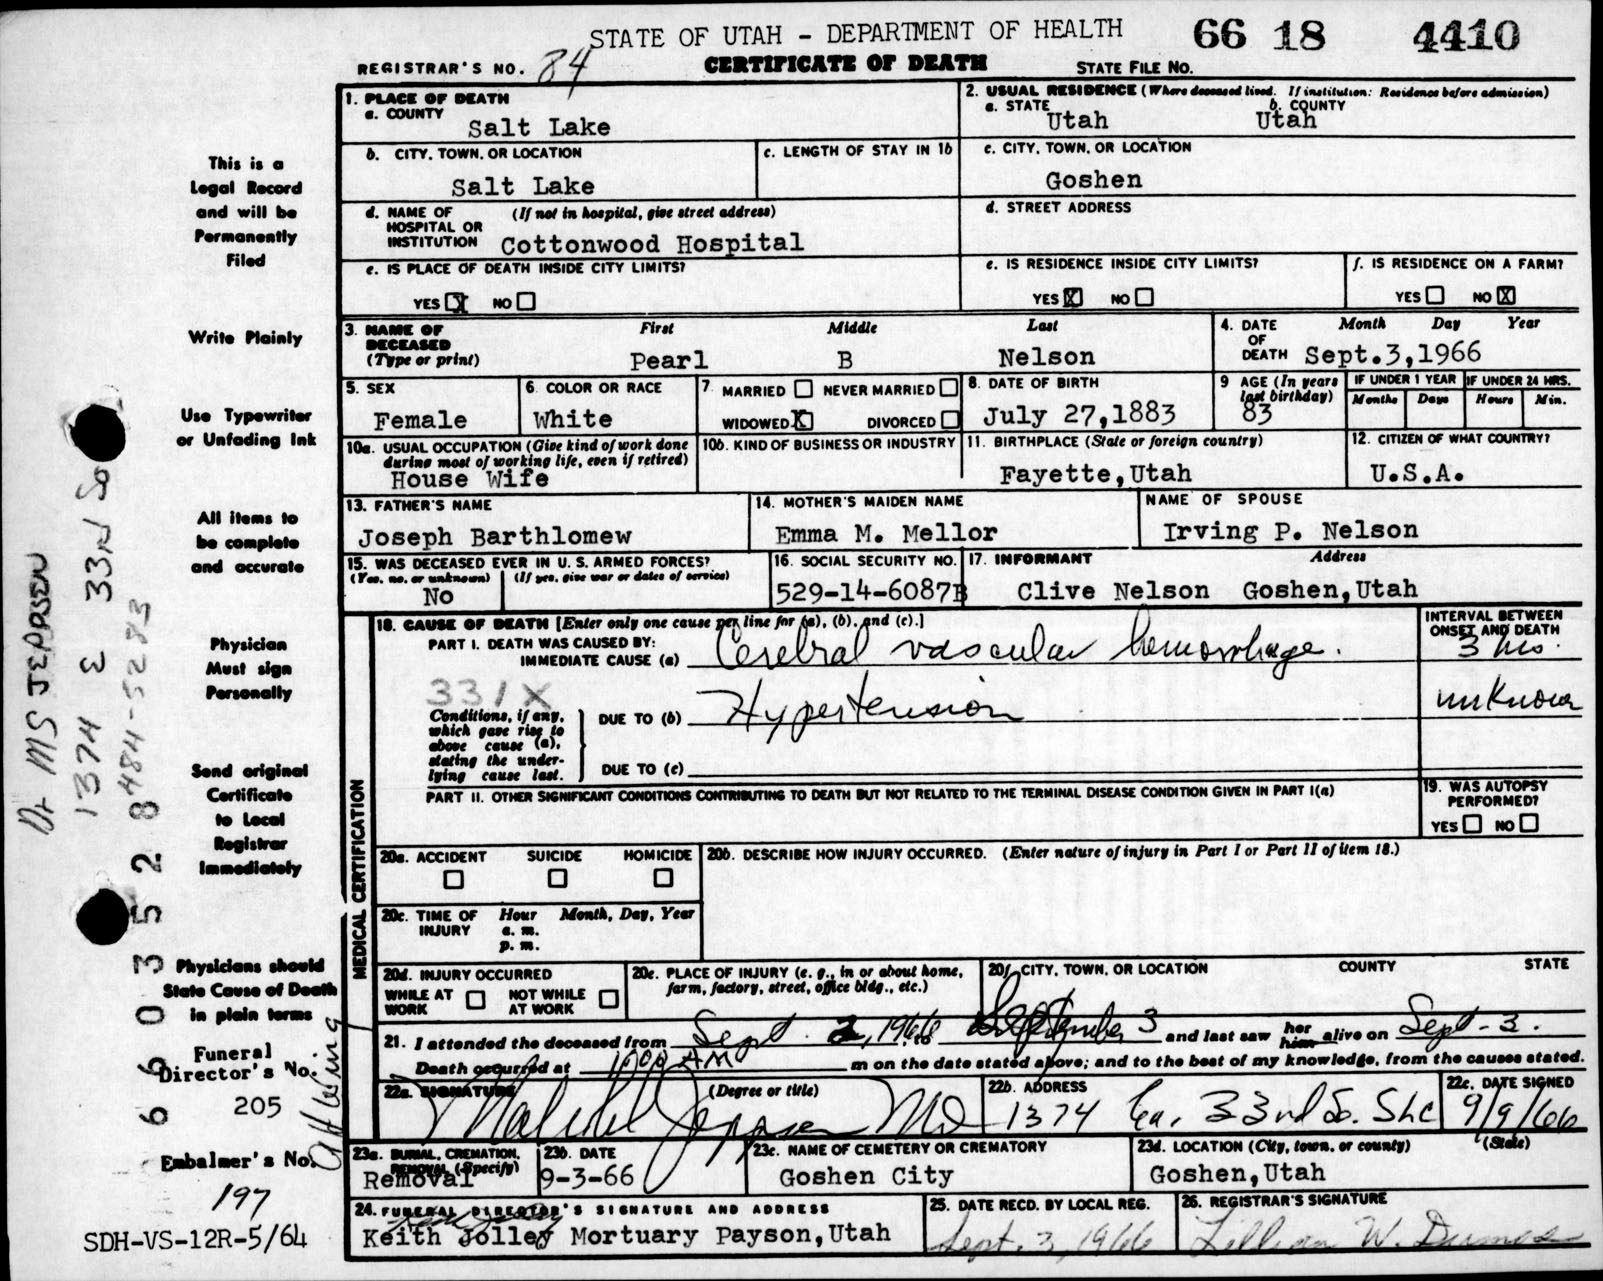 STATE OF UTAH - DEPARTMENT OF HEALTH 66 18 4410
REGISTRAR'S NO. 84 CERTIFICATE OF DEATH STATE FILE NO.
1. PLACE OF DEATH
a. COUNTY
Salt Lake
2. USUAL RESIDENCE (Where deceased lived. If institution: Residence before admission)
a. STATE b. COUNTY
Utah Utah
b. CITY, TOWN, OR LOCATION
Salt Lake
c. LENGTH OF STAY IN 1b
c. CITY, TOWN, OR LOCATION
Goshen
d. NAME OF (If not in hospital, give street address)
HOSPITAL OR
INSTITUTION Cottonwood Hospital
d. STREET ADDRESS
e. IS PLACE OF DEATH INSIDE CITY LIMITS?
YES X NO
e. IS RESIDENCE INSIDE CITY LIMITS?
YES X NO
f. IS RESIDENCE ON A FARM?
YES NO X
3. NAME OF First Middle Last
DECEASED
(Type or print) Pearl B Nelson
4. DATE Month Day Year
OF
DEATH Sept.3,1966
5. SEX
Female
6. COLOR OR RACE
White
7. MARRIED NEVER MARRIED
WIDOWED X DIVORCED
8. DATE OF BIRTH
July 27,1883
9 AGE (In years
last birthday)
83
IF UNDER 1 YEAR IF UNDER 24 HRS.
Months Days Hours Min.
10a. USUAL OCCUPATION (Give kind of work done
during most of working life, even if retired)
House Wife
10b. KIND OF BUSINESS OR INDUSTRY
11. BIRTHPLACE (State or foreign country)
Fayette,Utah
12. CITIZEN OF WHAT COUNTRY?
U.S.A.
13. FATHER'S NAME
Joseph Barthlomew
14. MOTHER'S MAIDEN NAME
Emma M. Mellor
NAME OF SPOUSE
Irving P. Nelson
15. WAS DECEASED EVER IN U. S. ARMED FORCES?
(Yes, no, or unknown) (If yes, give war or dates of service)
No
16. SOCIAL SECURITY NO.
529-14-6087B
17. INFORMANT Address
Clive Nelson Goshen,Utah
18. CAUSE OF DEATH [Enter only one cause per line for (a), (b), and (c).]
INTERVAL BETWEEN
ONSET AND DEATH
PART I. DEATH WAS CAUSED BY:
IMMEDIATE CAUSE (a) Cerebral vascular hemorrhage. 3 hrs.
331X
Conditions, if any,
which gave rise to
above cause (a),
stating the under-
lying cause last.
DUE TO (b) Hypertension unknown
DUE TO (c)
PART II. OTHER SIGNIFICANT CONDITIONS CONTRIBUTING TO DEATH BUT NOT RELATED TO THE TERMINAL DISEASE CONDITION GIVEN IN PART I(a)
19. WAS AUTOPSY
PERFORMED?
YES NO
MEDICAL CERTIFICATION
20a. ACCIDENT SUICIDE HOMICIDE
20b. DESCRIBE HOW INJURY OCCURRED. (Enter nature of injury in Part I or Part II of item 18.)
20c. TIME OF Hour Month, Day, Year
INJURY a. m.
p. m.
20d. INJURY OCCURRED
WHILE AT NOT WHILE
WORK AT WORK
20e. PLACE OF INJURY (e. g., in or about home,
farm, factory, street, office bldg., etc.)
20f. CITY, TOWN, OR LOCATION COUNTY STATE
21. I attended the deceased from Sept. 2, 1966 to September 3 and last saw her him alive on Sept - 3.
Death occurred at 1000 AM m on the date stated above; and to the best of my knowledge, from the causes stated.
22a. SIGNATURE (Degree or title)
Jeppson MD
22b. ADDRESS
1374 Ea. 33rd So. Slc
22c. DATE SIGNED
9/9/66
23a. BURIAL, CREMATION,
REMOVAL (Specify)
Removal
23b. DATE
9-3-66
23c. NAME OF CEMETERY OR CREMATORY
Goshen City
23d. LOCATION (City, town, or county) (State)
Goshen,Utah
24. FUNERAL DIRECTOR'S SIGNATURE AND ADDRESS
Keith Jolley Mortuary Payson,Utah
25. DATE RECD. BY LOCAL REG.
Sept. 3, 1966
26. REGISTRAR'S SIGNATURE
Lillian W.
This is a
Legal Record
and will be
Permanently
Filed
Write Plainly
Use Typewriter
or Unfading Ink
All items to
be complete
and accurate
Physician
Must sign
Personally
Send original
Certificate
to Local
Registrar
Immediately
Physicians should
State Cause of Death
in plain terms
Funeral
Director's No.
205
Embalmer's No.
197
SDH-VS-12R-5/64
Dr MS JEPPSEN
1374 E 33rd So
484-5283
66035528